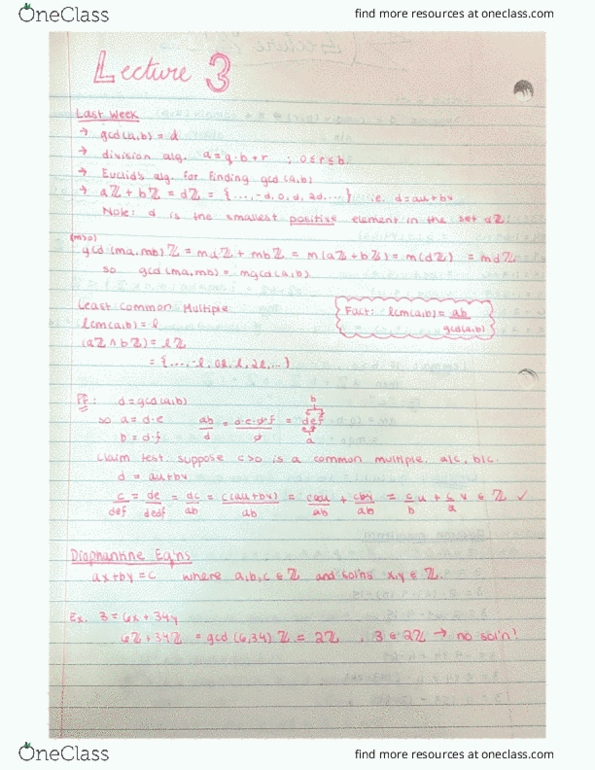 OneClass
find more resources at oneclass.com
Lecture 3
Last Week
→ gcd(a,b) = d
→ division alg. a = q·b + r ; 0≤r≤b
→ Euclid's alg. for finding gcd(a,b)
→ aℤ + bℤ = dℤ = {..., -d, 0, d, 2d, ...} i.e. d = au + bv
Note: d is the smallest positive element in the set dℤ
(m>0)
gcd(ma, mb)ℤ = maℤ + mbℤ = m(aℤ + bℤ) = m(dℤ) = mdℤ
so gcd(ma, mb) = mgcd(a,b)
Least Common Multiple
Fact: lcm(a,b) = ab/gcd(a,b)
lcm(a,b) = l
(aℤ ∩ bℤ) = lℤ
= {..., -l, 0l, l, 2l, ...}
Pf: d = gcd(a,b)
so a = d·e ab/d = d·e·d·f/d = def
b
a
b = d·f
Claim test. suppose c>0 is a common multiple. a|c, b|c.
d = au + bv
c/def = dc/dedf = dc/ab = c(au+bv)/ab = cau/ab + cbv/ab = c/b u + c/a v ∈ ℤ ✓
Diophantine Eq'ns
ax + by = c where a, b, c ∈ ℤ and soln's x, y ∈ ℤ.
Ex. 3 = 6x + 34y
6ℤ + 34ℤ = gcd(6,34)ℤ = 2ℤ , 3 ∉ 2ℤ → no sol'n!
OneClass
find more resources at oneclass.com